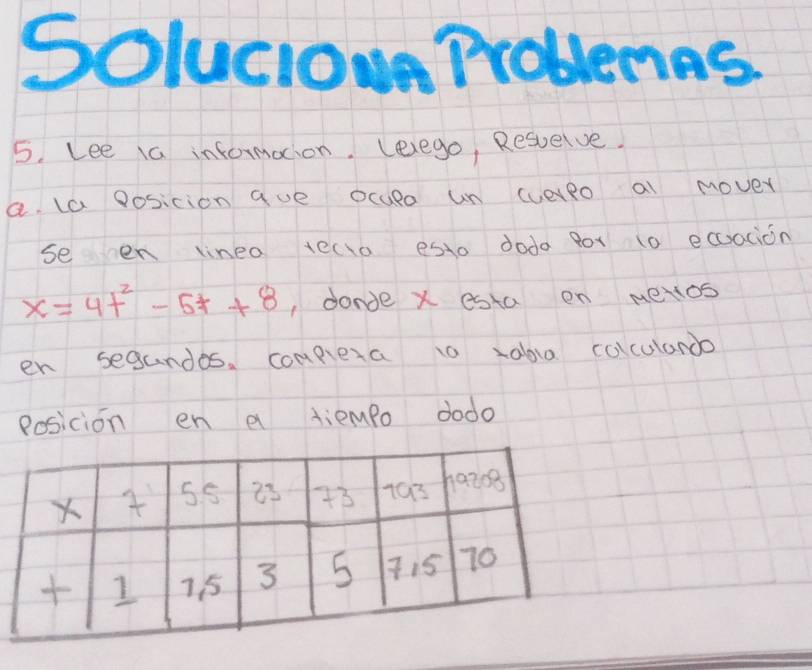 Solucion Problemas.
5. Lee la informacion. Luego, Resuelve.
a. La Posicion que ocupa un cuerpo al mover
se en linea recta esta dada por la ecuación
x = 4t² - 5t + 8, donde x esta en metros
en segundos. completa la tabla calculando
Posición en el tiempo dado
x 7 5.5 23 73 193 19208
t 1 1,5 3 5 7,5 70